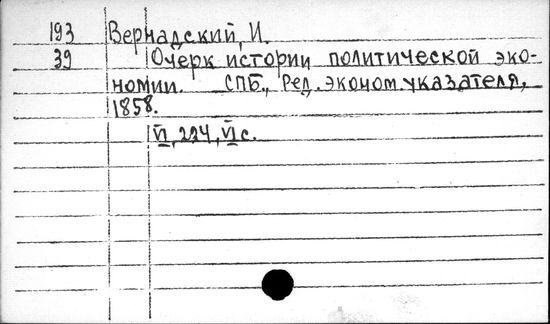 193 Вернадский, И.
39 Очерк истории политической эко-
номии. СПБ., Ред. эконом. указателя,
1858.
VI, 224, VI с.